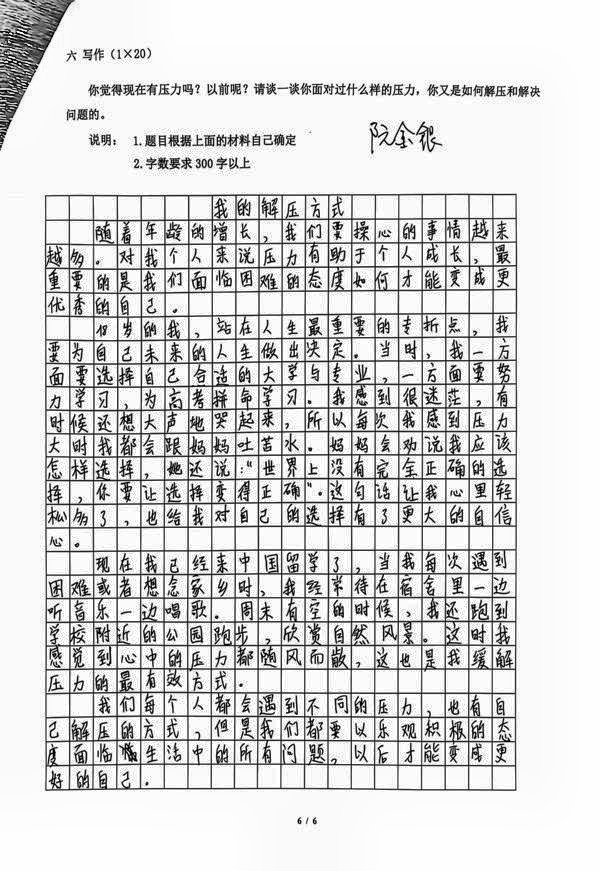 六 写作（1×20）
你觉得现在有压力吗？以前呢？请谈一谈你面对过什么样的压力，你又是如何解压和解决
问题的。
说明： 1.题目根据上面的材料自己确定
2.字数要求 300 字以上
阮金银
我的解压方式
随着年龄的增长，我们要操心的事情越来
越多。对我个人来说压力有助于个人成长，最
重要的是我们面临困难的态度如何才能变成更
优秀的自己。
18岁的我，站在人生最重要的专折点，我
要为自己未来的人生做出决定。当时，我一方
面要选择自己合适的大学与专业，一方面要努
力学习，为高考拼命学习。我感到很迷茫，有
时候还想大声地哭起来，所以每次我感到压力
大时我都会跟妈妈吐苦水。妈妈会劝说我应该
怎样选择，她还说：“世界上没有完全正确的选
择，你要让选择变得正确”。这句话让我心里轻
松多了，也给我对自己的选择有了更大的自信
心。
现在我已经来中国留学了，当我每次遇到
困难或者想念家乡时，我经常待在宿舍里一边
听音乐一边唱歌。周末有空的时候，我还跑到
学校附近的公园跑步，欣赏自然风景。这时我
感觉到心中的压力都随风而散，这也是我缓解
压力的最有效方式。
我们每个人都会遇到不同的压力，也有自
己解压的方式，但是我们都要以乐观积极的态
度面临生活中的所有问题，以后才能变成更
好的自己。
6 / 6